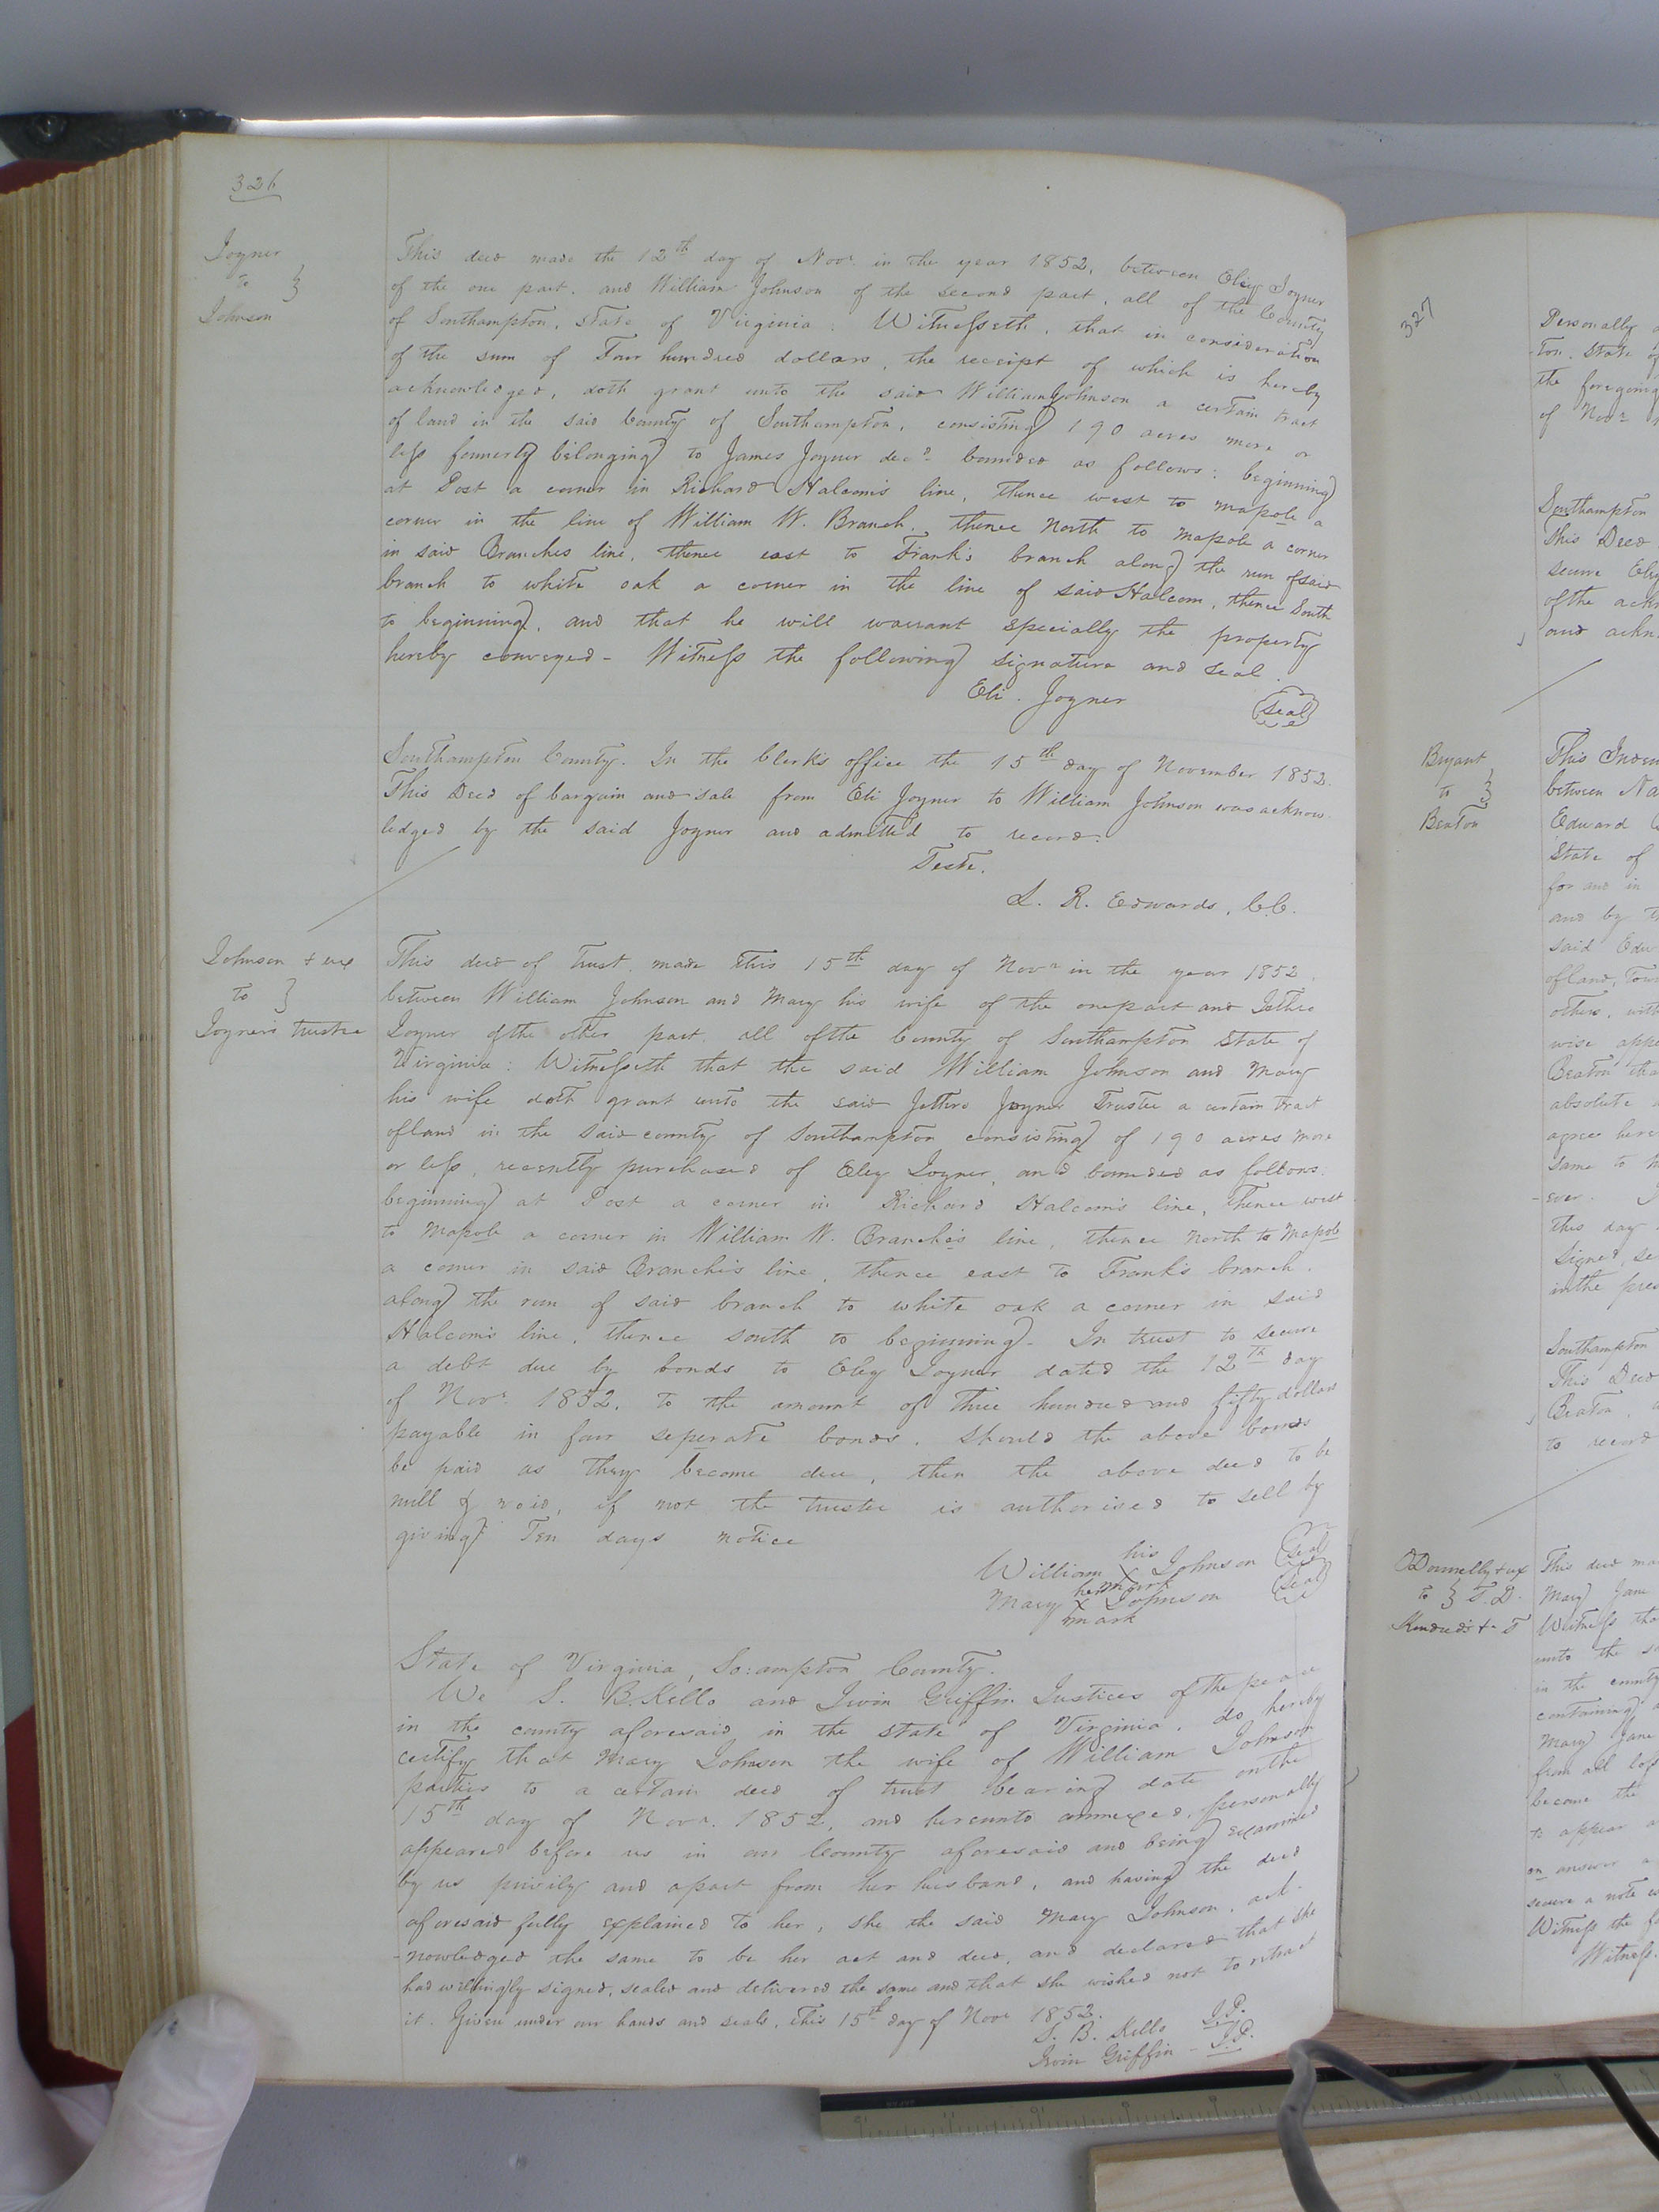 326
Joyner
to }
Johnson
This deed made the 12th day of Novr. in the year 1852, between Eley Joyner
of the one part, and William Johnson of the second part, all of the County
of Southampton, state of Virginia: Witnesseth, that in consideration
of the sum of Four hundred dollars, the receipt of which is hereby
acknowledged, doth grant unto the said William Johnson a certain tract
of land in the said County of Southampton, consisting 190 acres more or
less formerly belonging to James Joyner decd. bounded as follows: beginning
at Post a corner in Richard Halcom's line, thence west to mapole a
corner in the line of William W. Branch, thence North to mapole a corner
in said Branches line, thence east to Frank's branch along the run of said
branch to white oak a corner in the line of said Halcom, thence South
to beginning, and that he will warrant specially the property
hereby conveyed - Witness the following signature and seal.
Eli. Joyner
Seal
Southampton County. In the Clerk's office the 15th day of November 1852.
This Deed of bargain and sale from Eli Joyner to William Johnson was acknow-
ledged by the said Joyner and admitted to record.
Teste.
L. R. Edwards, C.C.
Johnson & ux
to }
Joyner's trustee
This deed of trust, made this 15th day of Novr in the year 1852,
between William Johnson and Mary his wife of the one part and Jethro
Joyner of the other part, all of the County of Southampton State of
Virginia: Witnesseth that the said William Johnson and Mary
his wife doth grant unto the said Jethro Joyner Trustee a certain tract
of land in the said county of Southampton consisting of 190 acres more
or less, recently purchased of Eley Joyner, and bounded as follows:
beginning at Post a corner in Richard Halcom's line, thence west
to mapole a corner in William W. Branche's line, thence north to mapole
a corner in said Branch's line, thence east to Frank's branch,
along the run of said branch to white oak a corner in said
Halcom's line, thence south to beginning. In trust to secure
a debt due by bonds to Eley Joyner dated the 12th day
of Novr. 1852, to the amount of Three hundred and fifty dollars
payable in four seperate bonds. Should the above bonds
be paid as they become due, then the above deed to be
null & void, if not the trustee is authorised to sell by
giving Ten days notice
William his X mark Johnson Seal
Mary her X mark Johnson Seal
State of Virginia, So:ampton County.
We S. B. Kello and Irvin Griffin Justices of the peace
in the county aforesaid in the state of Virginia, do hereby
certify that Mary Johnson the wife of William Johnson
parties to a certain deed of trust bearing date on the
15th day of Novr. 1852, and hereunto annexed, personally
appeared before us in our County aforesaid and being examined
by us privily and apart from her husband, and having the deed
aforesaid fully explained to her, she the said Mary Johnson, ack-
-nowledged the same to be her act and deed, and declared that she
had willingly signed, sealed and delivered the same and that she wished not to retract
it. Given under our hands and seals, this 15th day of Novr 1852.
S. B. Kello J.P.
Irvin Griffin - J.P.
327
Personally
ton, State of
the foregoing
of Novr
Southampton
This Deed
secure Eley
of the ackn
and ackn
Bryant
to }
Beaton
This Inden
between Na
Edward
State of
for and in
and by th
said Edw
of land, Tow
others, with
wise appe
Beaton tha
absolute
agree here
same to
-ever.
this day
Signed, se
in the pres
Southampton
This Deed
Beaton,
to record
ODonnelly & ux
to } T.D.
Kindred's & T
This deed ma
Mary Jane
Witness tha
unto the sa
in the county
containing
Mary Jane
from all los
become the
to appear
an answer
secure a note
Witness the fo
Witness.